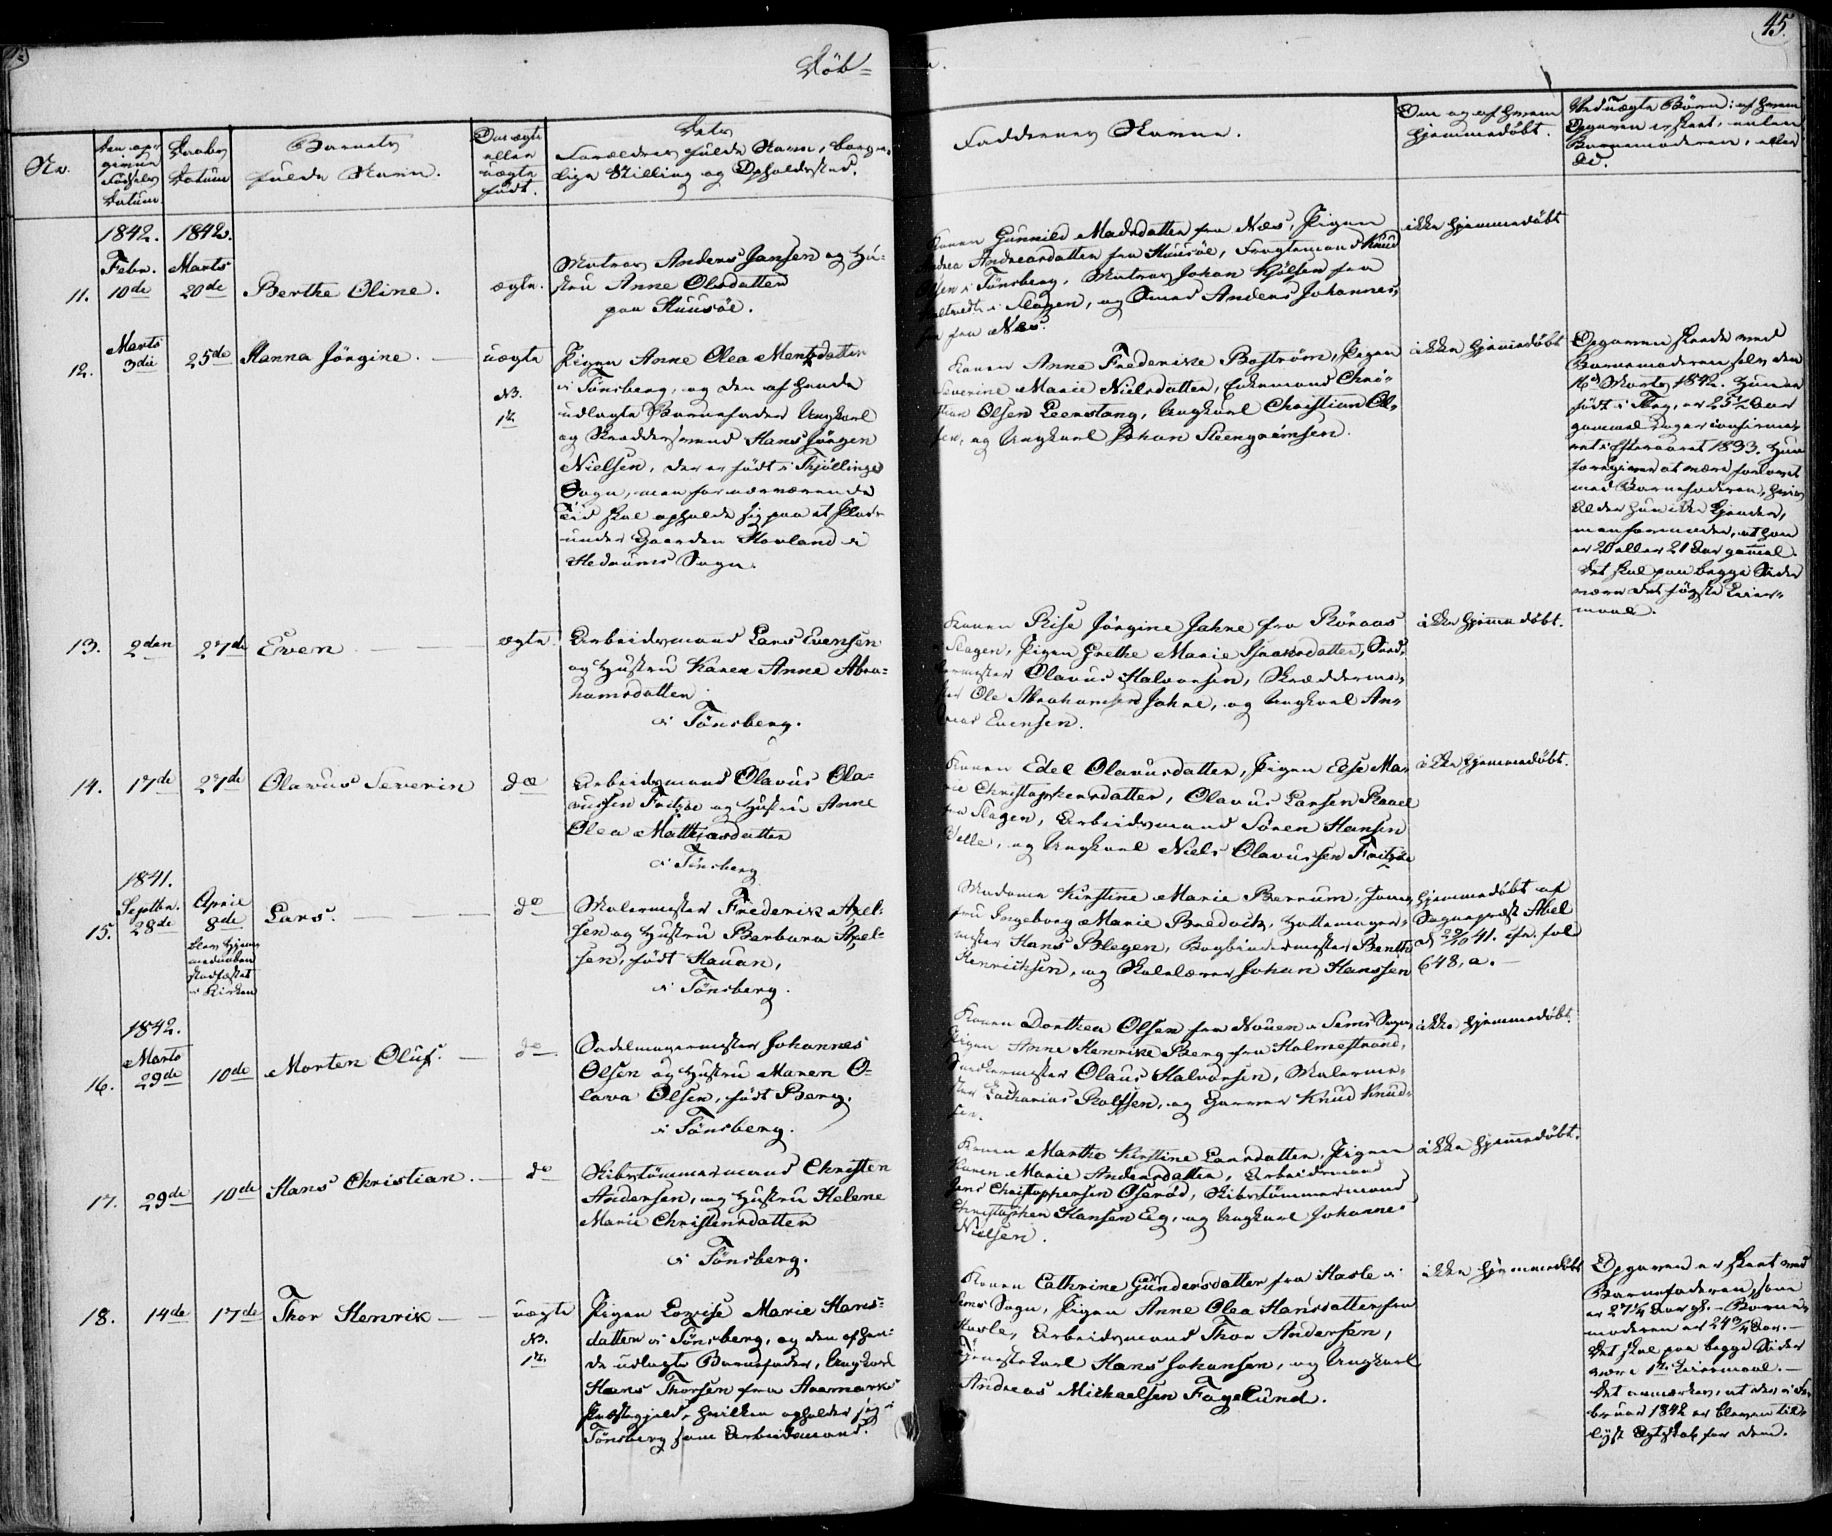 45.
Døb=
No.
Den op=
givne
Fødsels
Datum
Daabs
Datum
Barnets
fulde Navn.
Om ægte
eller
uægte
født.
Dets
Forældres fulde Navn, borger=
lige Stilling og Opholdssted.
Faddernes Navne.
Om og af hvem
hjemmedøbt.
Ved uægte Børn: af hvem
Opgaven er skeet, enten
Barnemoderen, eller

1842. 1842.
Febr. Marts
11. 10de 20de Berthe Oline. ægte.
Matros Anders Jansen og Hu=
stru Anne Olsdatter
paa Huusøe.
Konen Gunnild Madsdatter fra Næs, Pigen
Andreasdatter fra Huusøe, Fragtemand Knud
i Tønsberg, Matros Johan Kjølsen fra
i Slagen, og Smed Anders Johannes=
fra Næs.
ikke hjemmedøbt
Marts
12. 3die 25de Hanna Jörgine. uægte
NB.
1ste
Pigen Anne Olea Mentzdatter
i Tønsberg, og den af hende
udlagte Barnefader Ungkarl
og Skræddersvend Hans Jörgen
Nielsen, der er født i Skjöllinge
Sogn, men for nærværende
Tid skal opholde sig paa et Plads
under Gaarden Hovland i
Hedrums Sogn.
Konen Anne Frederikke Boström, Pigen
Severine Marie Nielsdatter, Enkemand Chri=
stian Olsen Leerstang, Ungkarl Christian Ol=
sen, og Ungkarl Johan Steengrimsen.
ikke hjemmedøbt
Opgaven skeede ved
Barnemoderen selv den
16de Marts 1842. Hun er
født i , er 25½ Aar
gammel og er confirme=
ret i Efteraaret 1833. Hun
foregiver at være forlovet
med Barnefaderen, hvis
Alder hun ikke kjender,
men formoder, at han
er 20 eller 21 Aar gammel.
Det skal paa begge Sider
være det første Leier=
maal.
13. 2den 27de Even. ægte
Arbeidsmand Lars Evensen
og Hustru Karen Anne Abra=
hamsdatter
i Tønsberg.
Konen Rise Jörgine Jahre fra Röraas
i Slagen, Pigen Grethe Marie Isaaksdatter,
Olavus Halvorsen, Skrædderme=
ster Ole Abrahamsen Jahre, og Ungkarl An=
Evensen.
ikke hjemmedøbt.
14. 17de 27de Olavus Severin do
Arbeidsmand Olavus Ola=
vussen Fritzøe og Hustru Anne
Olea Matthiasdatter
i Tønsberg
Konen Edel Olavusdatter, Pigen Else Ma=
rie Christophersdatter, Olavus Larsen Raael
fra Slagen, Arbeidsmand Sören Hansen
, og Ungkarl Niels Olavussen Fritzøe
ikke hjemmedøbt.
1841.
Septbr. April
15. 28de 8de Lars. do
blev Hjem=
medaaben
stadfæstet
i Kirken
Malermester Frederik Axel=
sen og Hustru Barbara Axel=
sen, født Hauan,
i Tønsberg.
Madame Kirstine Marie Berrum, Jom=
fru Ingeborg Marie Bredoch, Hattemager=
mester Hans Blegen, Bogbindermester Bernth
Henrichsen, og Skolelærer Johan Hanssen
Hjemmedøbt af
Sognepræst Abel
d 29/10 41. cfr. fol
648, a. —
1842.
Marts
16. 29de 10de Morten Oluf. do
Sadelmagermester Johannes
Olsen og Hustru Maren O=
lava Olsen, født Berg.
i Tønsberg.
Konen Dorthea Olsen fra Nouen i Sems Sogn,
Pigen Anne Henrikke Berg fra Holmestrand,
Olaus Halvorsen, Malerme=
ster Zacharias Rolfsen, og Garver Knud Knud=
sen.
ikke hjemmedøbt.
17. 29de 10de Hans Christian. do
Skibstømmermand Christen
Andersen, og Hustru Helene
Marie Christensdatter
i Tønsberg.
Konen Marthe Kirstine Larsdatter, Pigen
Karen Marie Andersdatter, Arbeidsmand
Jens Christophersen Oserød, Skibstømmermand
Christopher Hansen Eeg, og Ungkarl Johannes
Nielsen.
ikke hjemmedøbt.
18. 14de 17de Thor Henrik uægte
NB.
1ste
Pigen Lovise Marie Hans=
datter i Tønsberg, og den af hen=
de udlagte Barnefader, Ungkarl
Hans Thorsen fra Aremarks
Præstegjeld, hvilken opholder sig i
Tønsberg som Arbeidsmand.
Konen Cathrine Gundersdatter fra Hasle i
Sems Sogn, Pigen Anne Olea Hansdatter fra
Hasle, Arbeidsmand Thor Andersen,
Tjenestekarl Hans Johansen, og Ungkarl
Andreas Michaelsen Fagelund.
ikke hjemmedøbt
Opgaven er skeet ved
Barnefaderen, som
er 27¼ Aar gl. — Barne=
moderen er 24¾ Aar. —
Det skal paa begge Sider
være 1ste Leiermaal. —
Det anmærkes, at der i Fe=
bruar 1842 er bleven til=
lyst Ægteskab for dem.